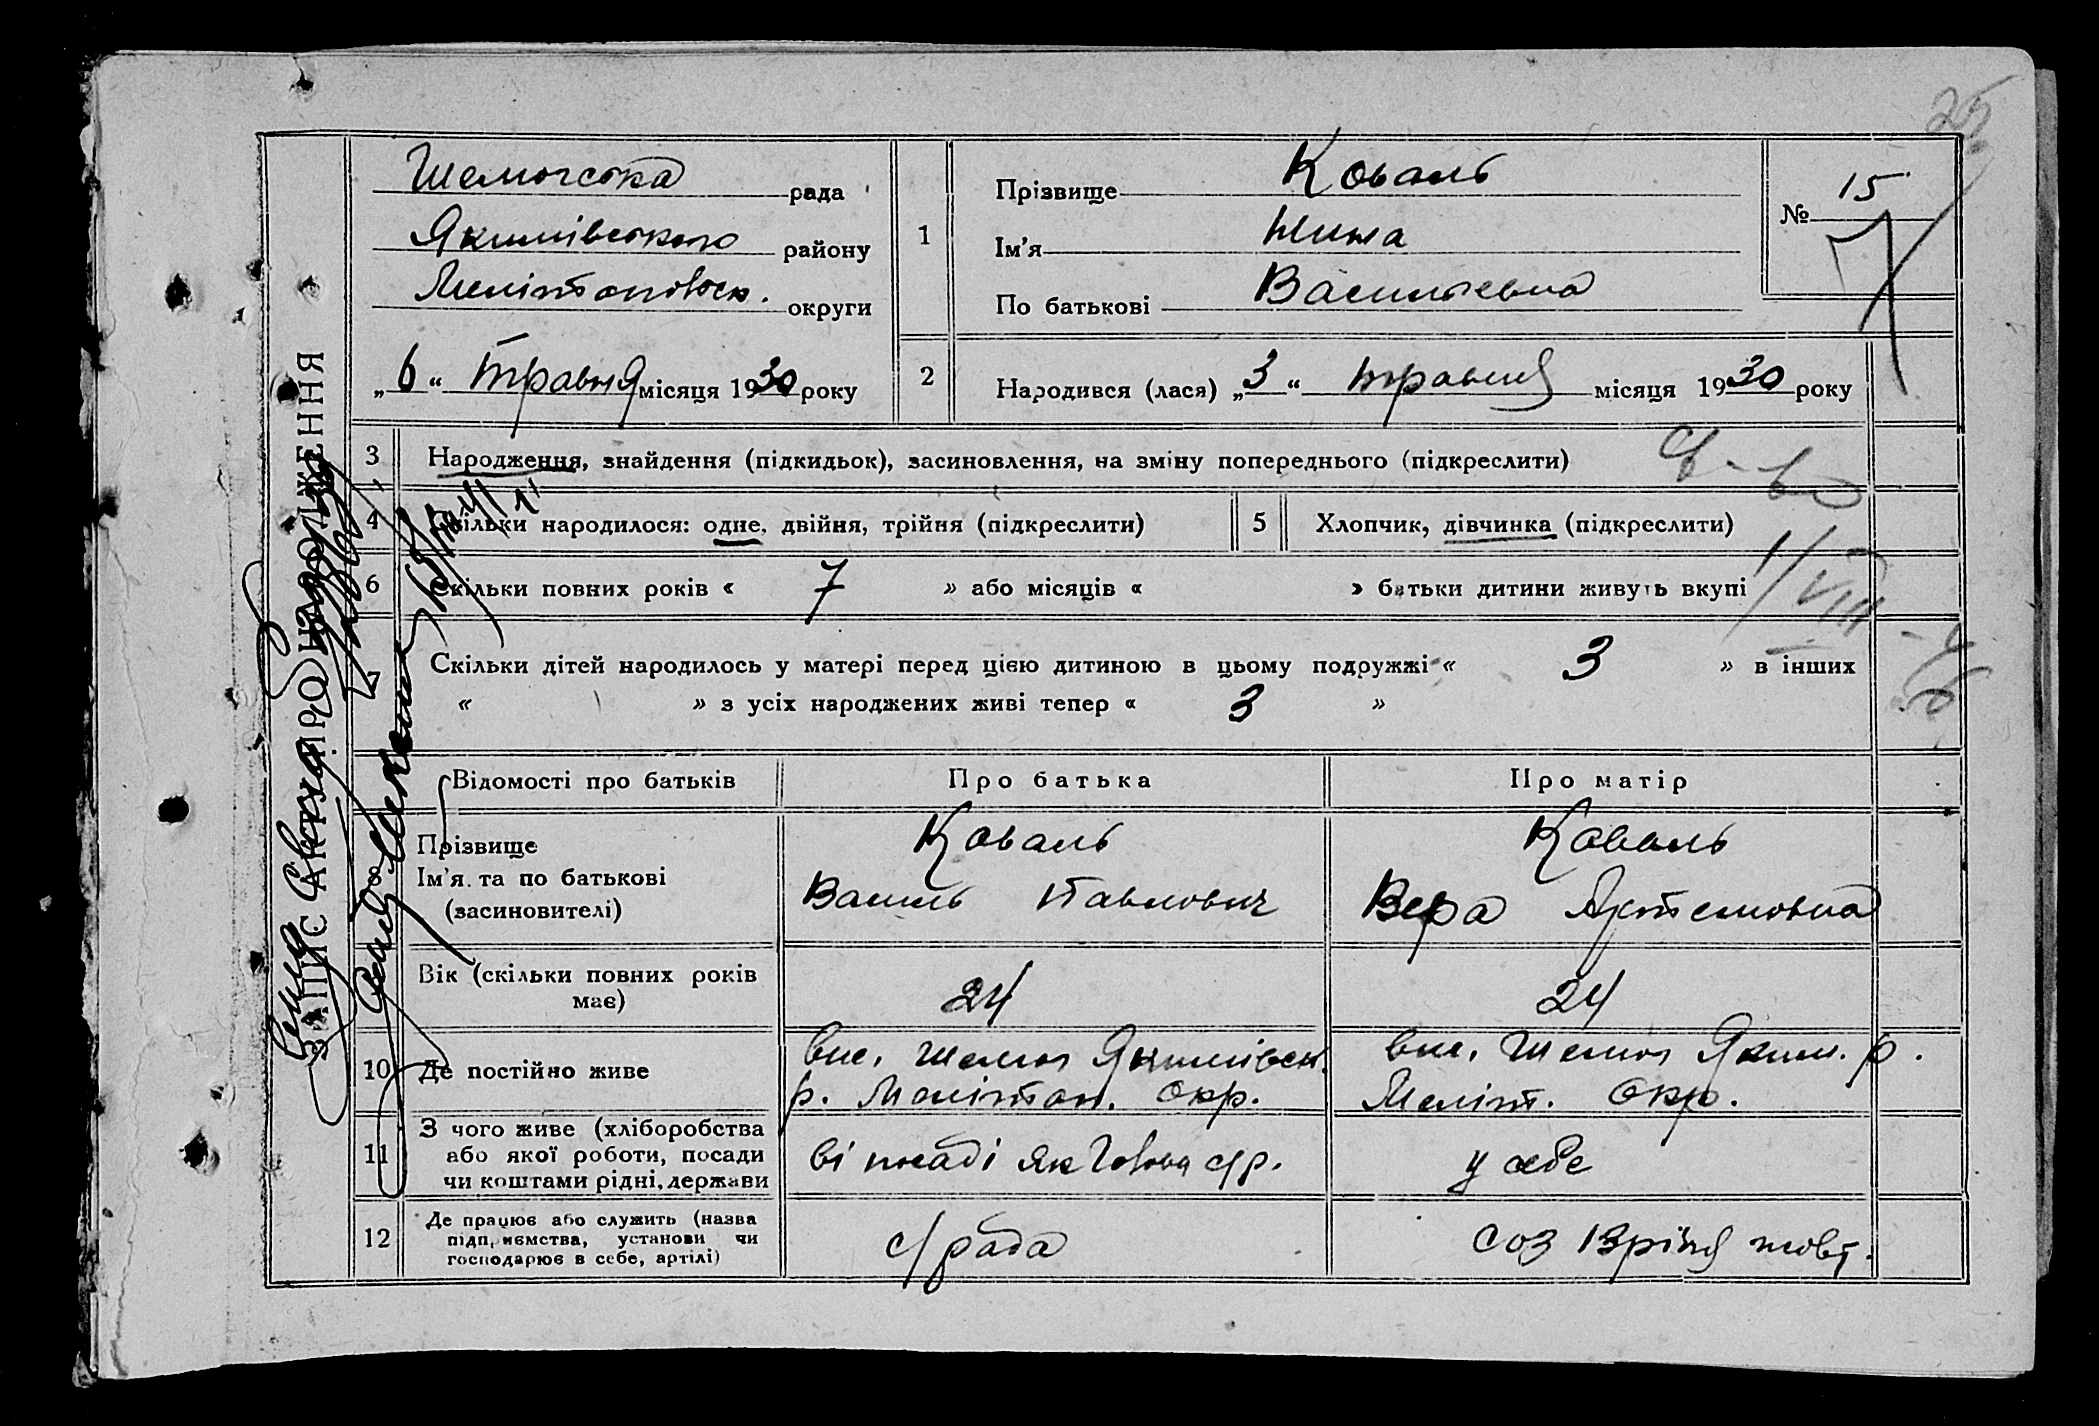 25
ЗАПИС АКТУ ПРО НАРОДЖЕННЯ
Шемогська рада
Якимівського району
Мелітопівськ. округи
„6“ травня місяця 1930 року
1
Прізвище Коваль
Ім'я Нина
По батькові Васильевна
№ 15
2
Народився (лася) „3“ травня місяця 1930 року
3 Народження, знайдення (підкидьок), засиновлення, на зміну попереднього (підкреслити)
4 Скільки народилося: одне, двійня, трійня (підкреслити)
5 Хлопчик, дівчинка (підкреслити)
6 Скільки повних років « 7 » або місяців « » батьки дитини живуть вкупі
7 Скільки дітей народилось у матері перед цією дитиною в цьому подружжі « 3 » в інших
« » з усіх народжених живі тепер « 3 »
с-во
1/VIII
Відомості про батьків Про батька Про матір
Прізвище Коваль Коваль
Ім'я та по батькові Василь Павлович Вера Артемовна
(засиновителі)
Вік (скільки повних років має) 24 24
10 Де постійно живе
вис. Шемог Якимівськ.
р. Мелітоп. Окр.
вис. Шемог Яким. р.
Меліт. Окр.
11 З чого живе (хліборобства
або якої роботи, посади
чи коштами рідні, держави
ві посаді як Голова с/р.
у себе
12 Де працює або служить (назва
підприємства, установи чи
господарює в себе, артілі)
с/рада
соз 13 річя жовт.